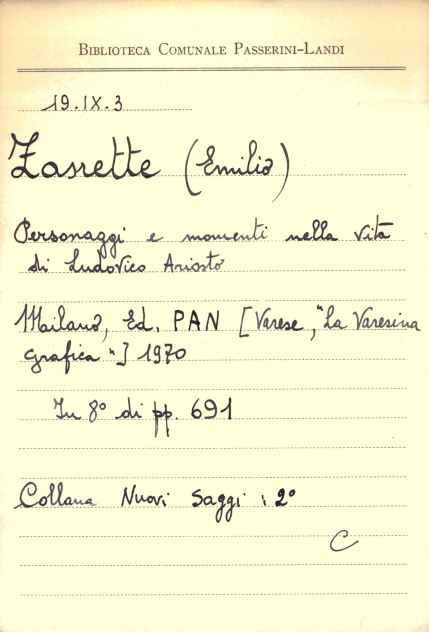 BIBLIOTECA COMUNALE PASSERINI-LANDI
19.IX.3
Zanette (Emilio)
Personaggi e momenti nella vita
di Ludovico Ariosto
Milano, Ed. PAN [Varese, "La Varesina
grafica"] 1970
In 8° di pp. 691
Collana Nuovi Saggi : 2°
C